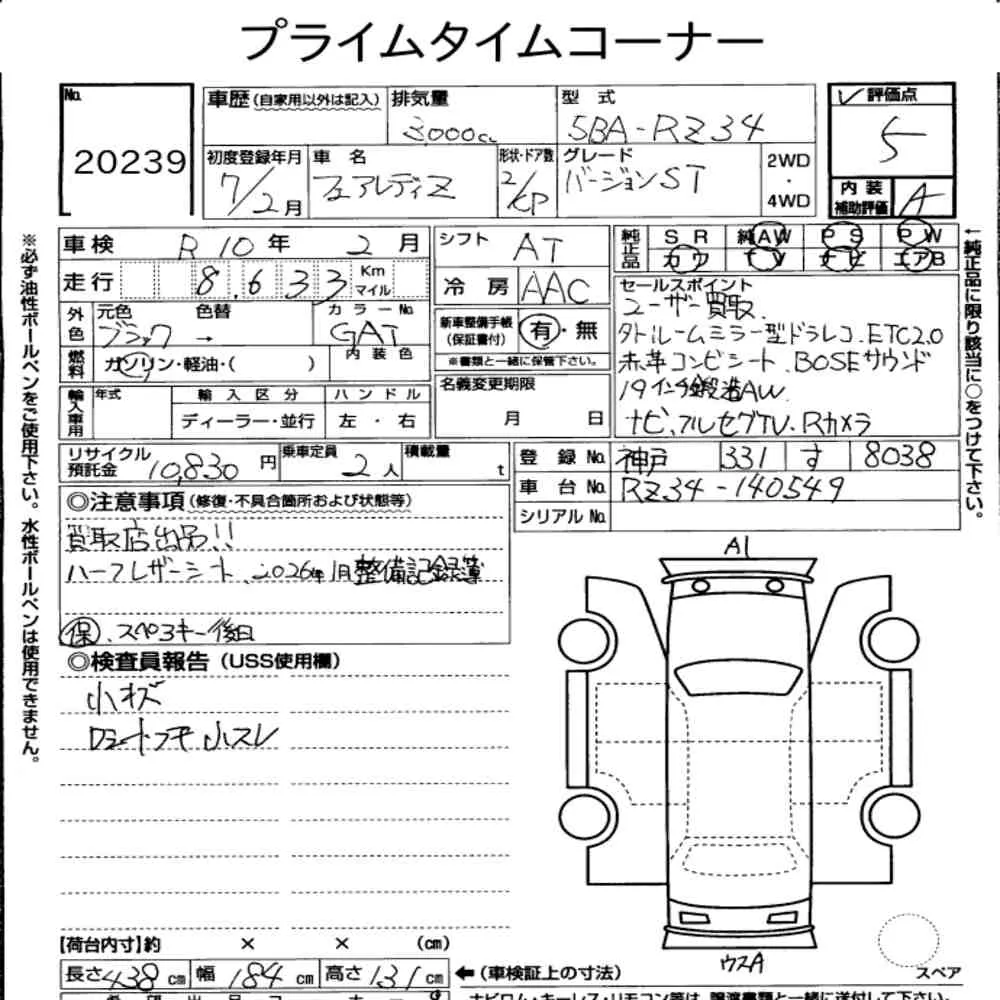 プライムタイムコーナー
No. 20239
車歴 (自家用以外は記入)
排気量 3000cc
型式 5BA-RZ34
初度登録年月 7/2月
車名 フェアレディZ
形状・ドア数 2/KP
グレード バージョンST
2WD・4WD
✓評価点 5
内装補助評価 A
車検 R10年 2月
シフト AT
走行 8,633 Km マイル
冷房 AAC
純正品 SR 純AW PS PW
カワ TV ナビ エアB
外色 元色 ブラック → 色替
カラーNo. GAT
内装色
燃料 ガソリン・軽油・( )
新車整備手帳(保証書付) 有・無
※書類と一緒に保管下さい。
セールスポイント
ユーザー買取
タトルームミラー型ドラレコ.ETC2.0
赤革コンビシート.BOSEサウンド
19インチ鍛造AW
ナビ,フルセグTV.Rカメラ
輸入車用 年式
輸入区分 ディーラー・並行
ハンドル 左・右
名義変更期限 月 日
リサイクル預託金 10,830円
乗車定員 2人
積載量 t
登録No. 神戸 331 す 8038
車台No. RZ34-140549
シリアルNo.
◎注意事項(修復・不具合箇所および状態等)
買取店出品!!
ハーフレザーシート、2026年1月整備記録簿
保.スペアキー後日
◎検査員報告(USS使用欄)
小キズ
小スレ
A1
ウスA
スペア
【荷台内寸】約 × × (cm)
長さ438cm 幅184cm 高さ131cm
←(車検証上の寸法)
※必ず油性ボールペンをご使用下さい。水性ボールペンは使用できません。
←純正品に限り該当に○をつけて下さい。